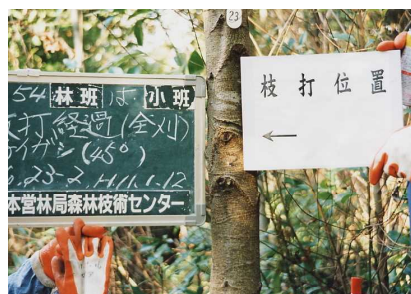 23
54 林班 は 小班
打経過(全刈)
イガシ(45°)
23-2 H11.1.12
本営林局森林技術センター
枝打位置
←